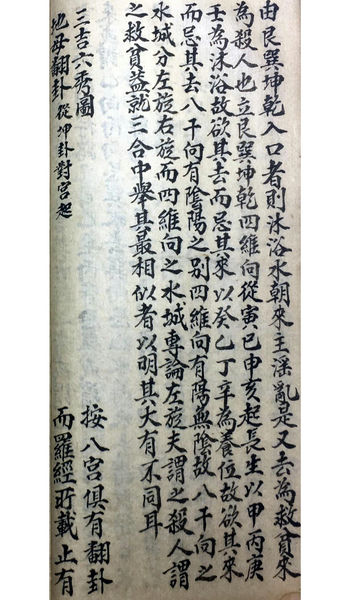 由艮巽坤乾入口者則沐浴水朝來主滛亂是又去為救貧來
為殺人也立艮巽坤乾四維向從寅巳申亥起長生以甲丙庚
壬為沐浴故欲其去而忌其來以癸乙丁辛為養位故欲其來
而忌其去八干向有陰陽之別四維向有陽無陰故八干向之
水城分左旋右旋而四維向之水城專論左旋夫謂之殺人謂
之救貧葢就三合中舉其最相似者以明其大有不同耳
三吉六秀圖
地母翻卦從坤卦對宮起
按八宮俱有翻卦
而羅經所載止有